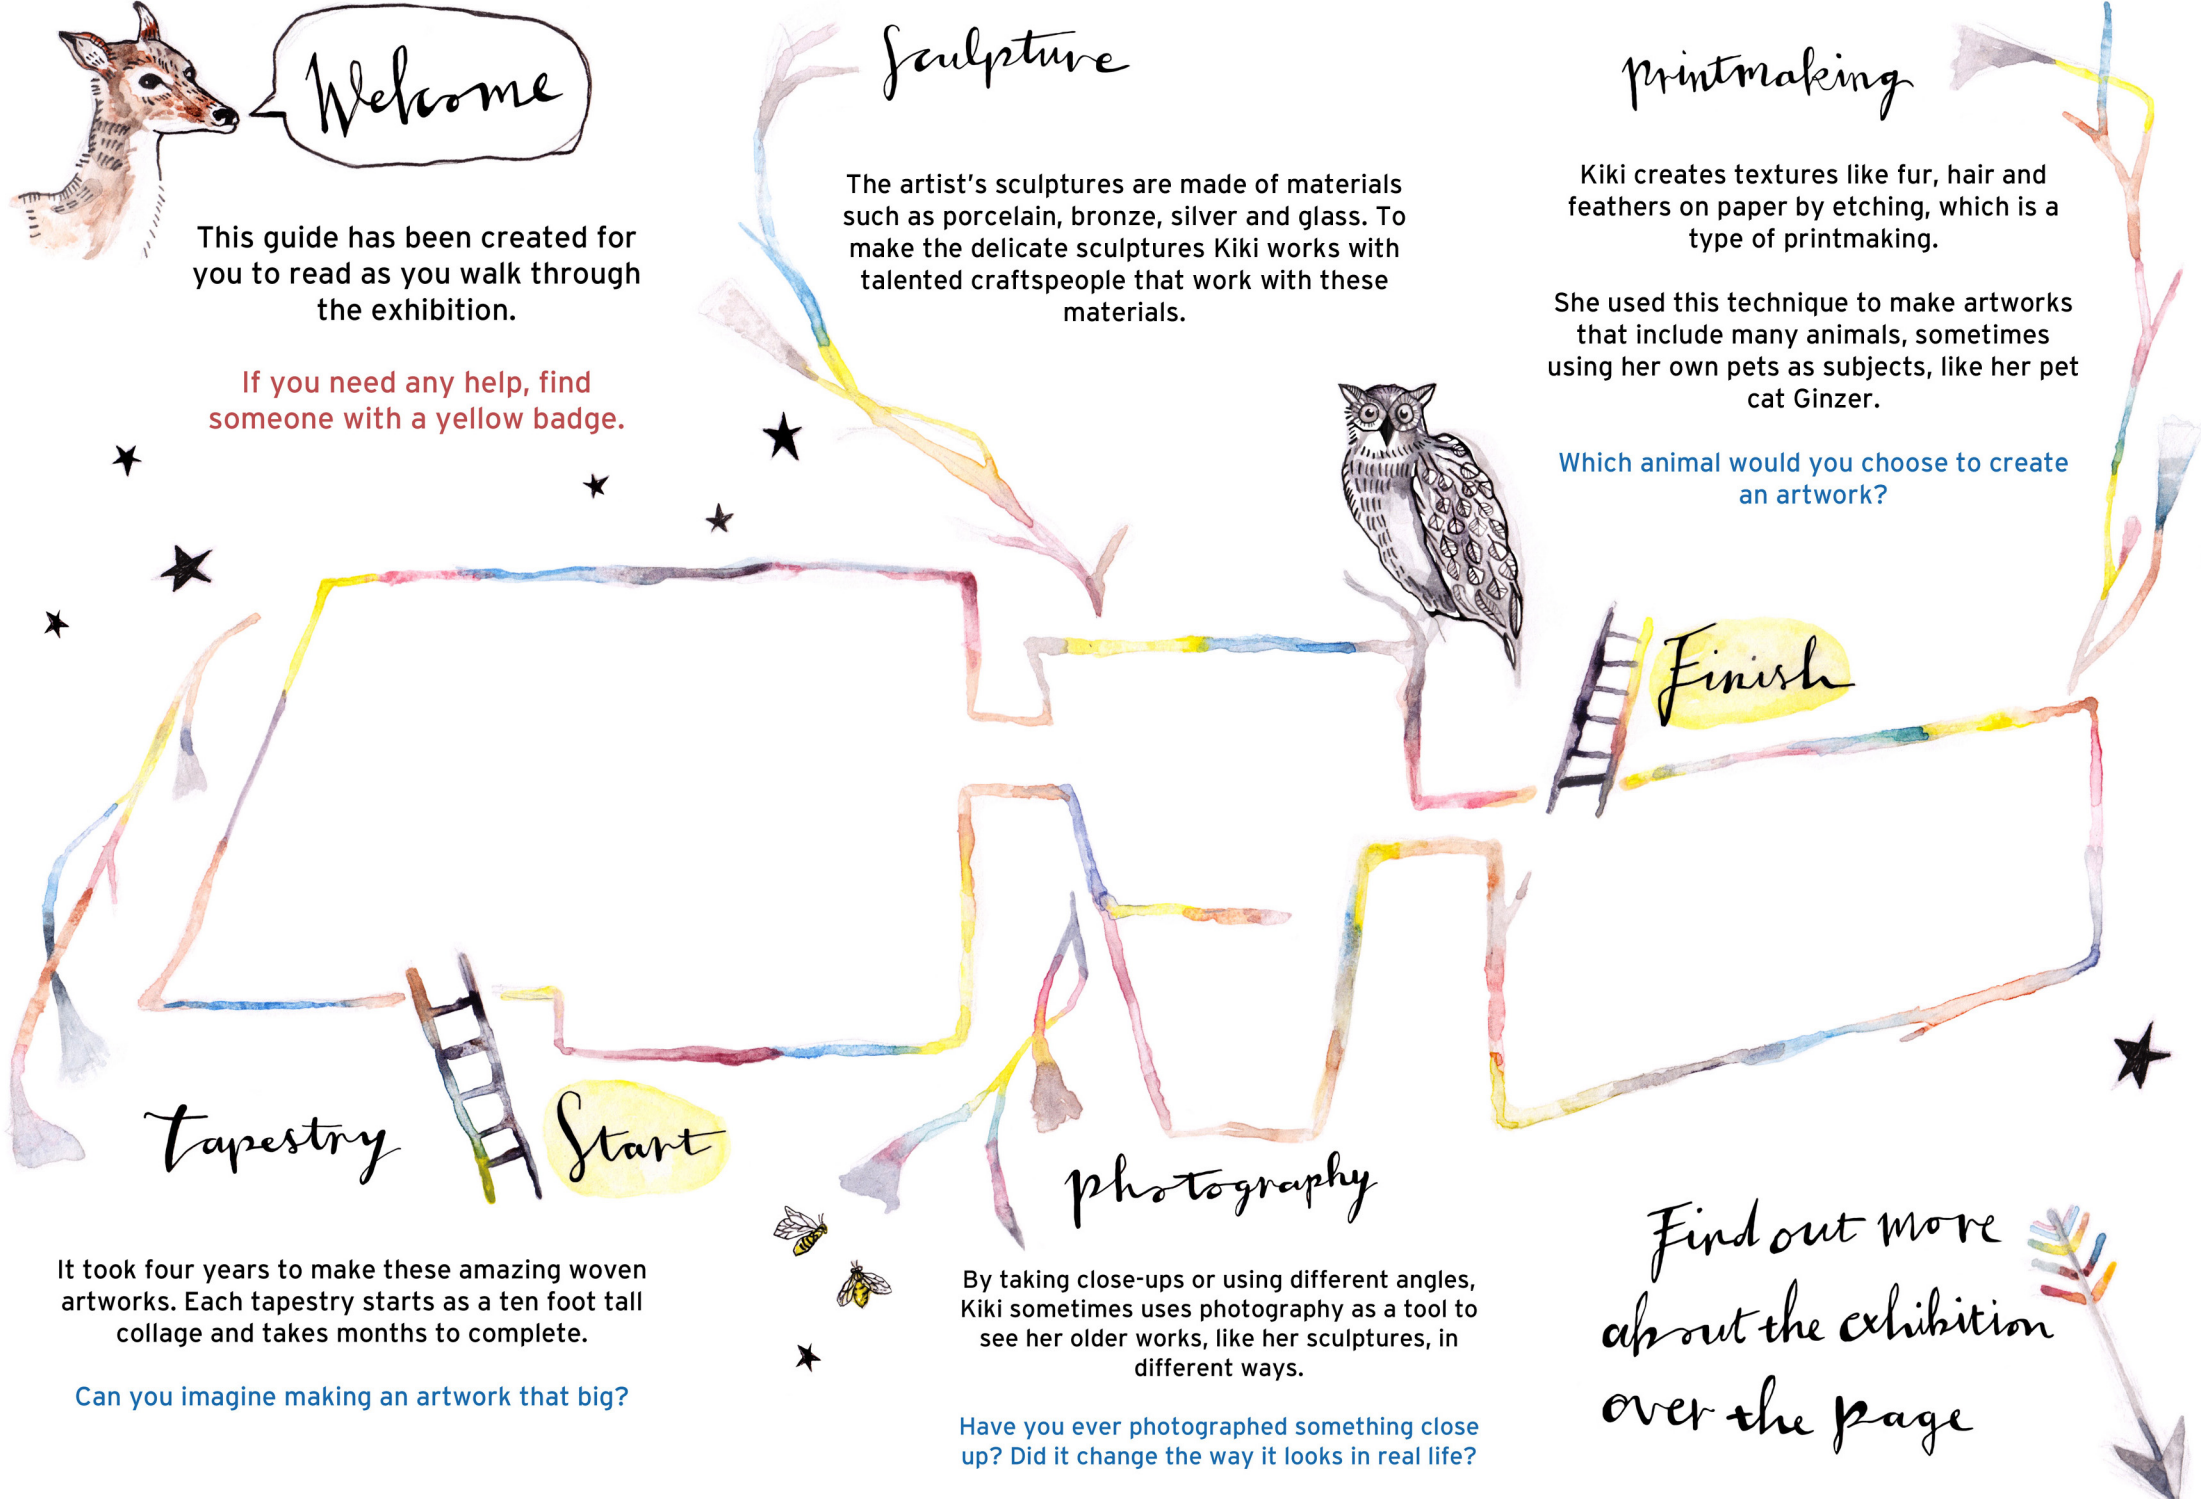 Welcome
This guide has been created for
you to read as you walk through
the exhibition.
If you need any help, find
someone with a yellow badge.
Sculpture
The artist's sculptures are made of materials
such as porcelain, bronze, silver and glass. To
make the delicate sculptures Kiki works with
talented craftspeople that work with these
materials.
Printmaking
Kiki creates textures like fur, hair and
feathers on paper by etching, which is a
type of printmaking.
She used this technique to make artworks
that include many animals, sometimes
using her own pets as subjects, like her pet
cat Ginzer.
Which animal would you choose to create
an artwork?
Finish
Tapestry
Start
It took four years to make these amazing woven
artworks. Each tapestry starts as a ten foot tall
collage and takes months to complete.
Can you imagine making an artwork that big?
Photography
By taking close-ups or using different angles,
Kiki sometimes uses photography as a tool to
see her older works, like her sculptures, in
different ways.
Have you ever photographed something close
up? Did it change the way it looks in real life?
Find out more
about the exhibition
over the page